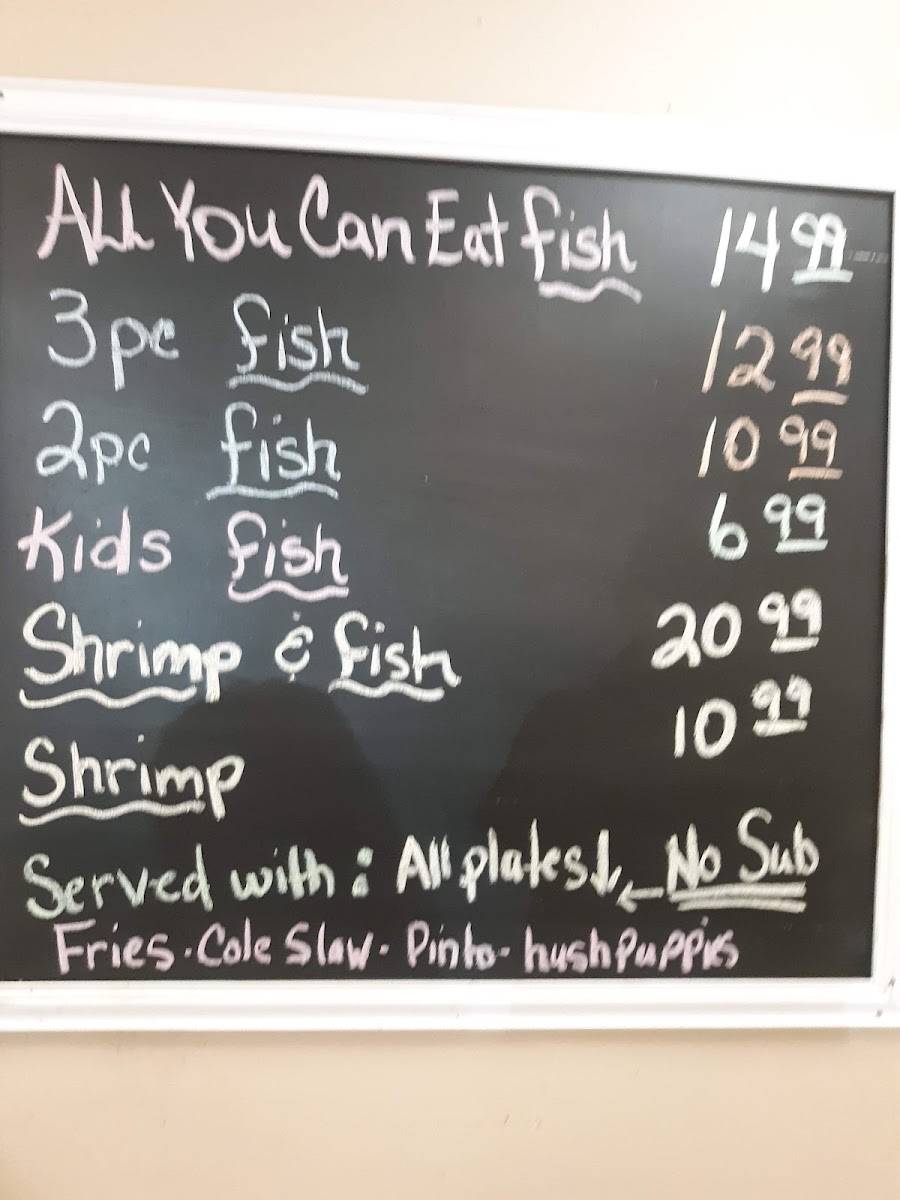 ALL You Can Eat fish 14 99
3pc fish 12 99
2pc fish 10 99
Kids fish 6 99
Shrimp & fish 20 99
Shrimp 10 99
Served with: All plates ↓ ← No Sub
Fries · Cole Slaw · Pinto · hushpuppies